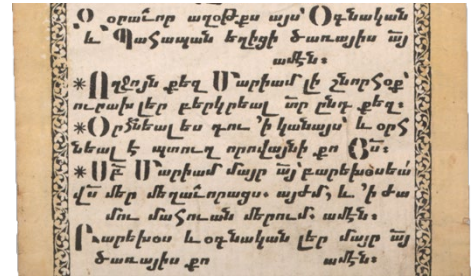 Օ օրաւոր աղօթքս այս՝ Օգնական
՛և Պահապան եղիցի ծառայիս ա՟յ
ամէն։
*Ողջոյն քեզ Մարիամ լի շնորհօք՝
ուրախ լեր բերկրեալ տ՟ր ընդ քեզ։
*Օրհնեալ ես դու ՛ի կանայս՝ և օրհ
նեալ է պտուղ որովայնի քո Յ՟ս։
*Ս՟Բ Մարիամ մայր ա՟յ՝ բարեխօսեա՛
վ՟ս մեր մեղաւորացս. այժմ, և ՛ի ժա
մու մահուան մերում. ամէն։
Բարեխօս և օգնական լեր մայր ա՟յ
ծառայիս քո ամէն։